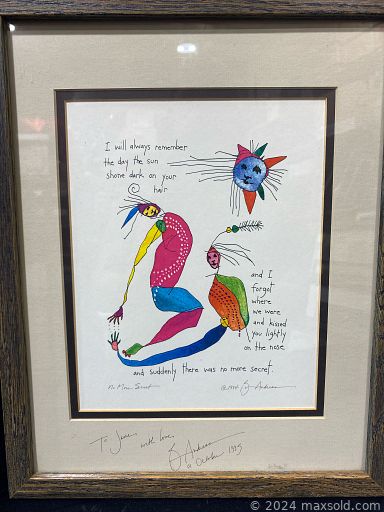 I will always remember
the day the sun
shone dark on your
hair
and I
forgot
where
we were
and kissed
you lightly
on the nose
and suddenly there was no more secret.
No More Secret
© 1994 Andreas
To
with love,
Andreas
October 1995
© 2024 maxsold.com